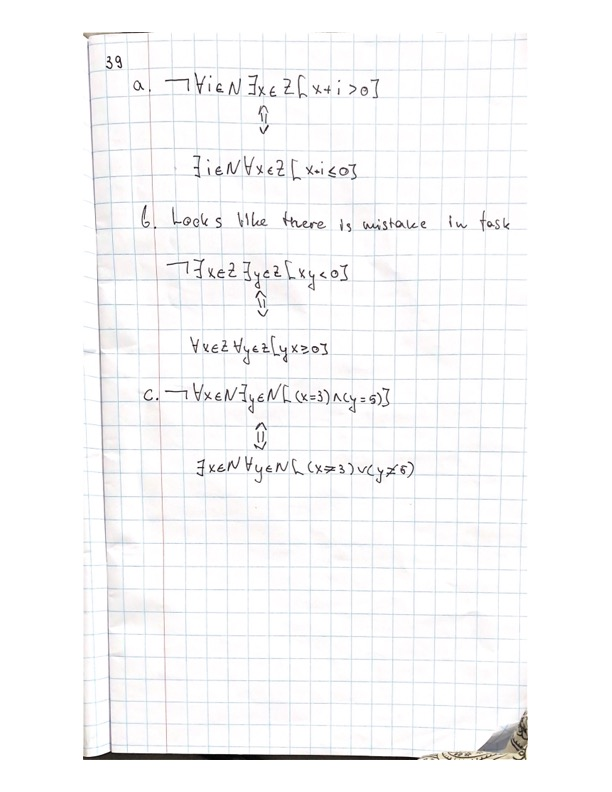 39
a. ¬∀i∈N ∃x∈Z[x+i>0]
⇕
∃i∈N∀x∈Z[x+i≤0]
b. Looks like there is mistake in task
¬∃x∈Z ∃y∈Z[xy<0]
⇕
∀x∈Z ∀y∈Z[yx≥0]
c. ¬∀x∈N∃y∈N[(x=3)∧(y=5)]
⇕
∃x∈N ∀y∈N[(x≠3)∨(y≠5)